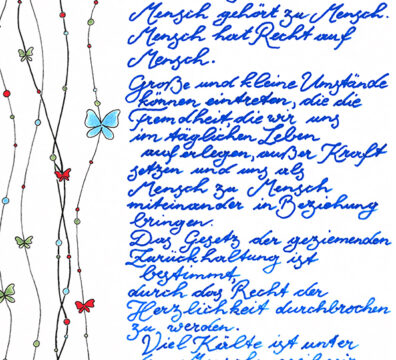 Mensch gehört zu Mensch.
Mensch hat Recht auf
Mensch.
Große und kleine Umstände
können eintreten, die die
Fremdheit, die wir uns
im täglichen Leben
auferlegen, außer Kraft
setzen und uns als
Mensch zu Mensch
miteinander in Beziehung
bringen.
Das Gesetz der geziemenden
Zurückhaltung ist
bestimmt,
durch das Recht der
Herzlichkeit durchbrochen
zu werden.
Viel Kälte ist unter